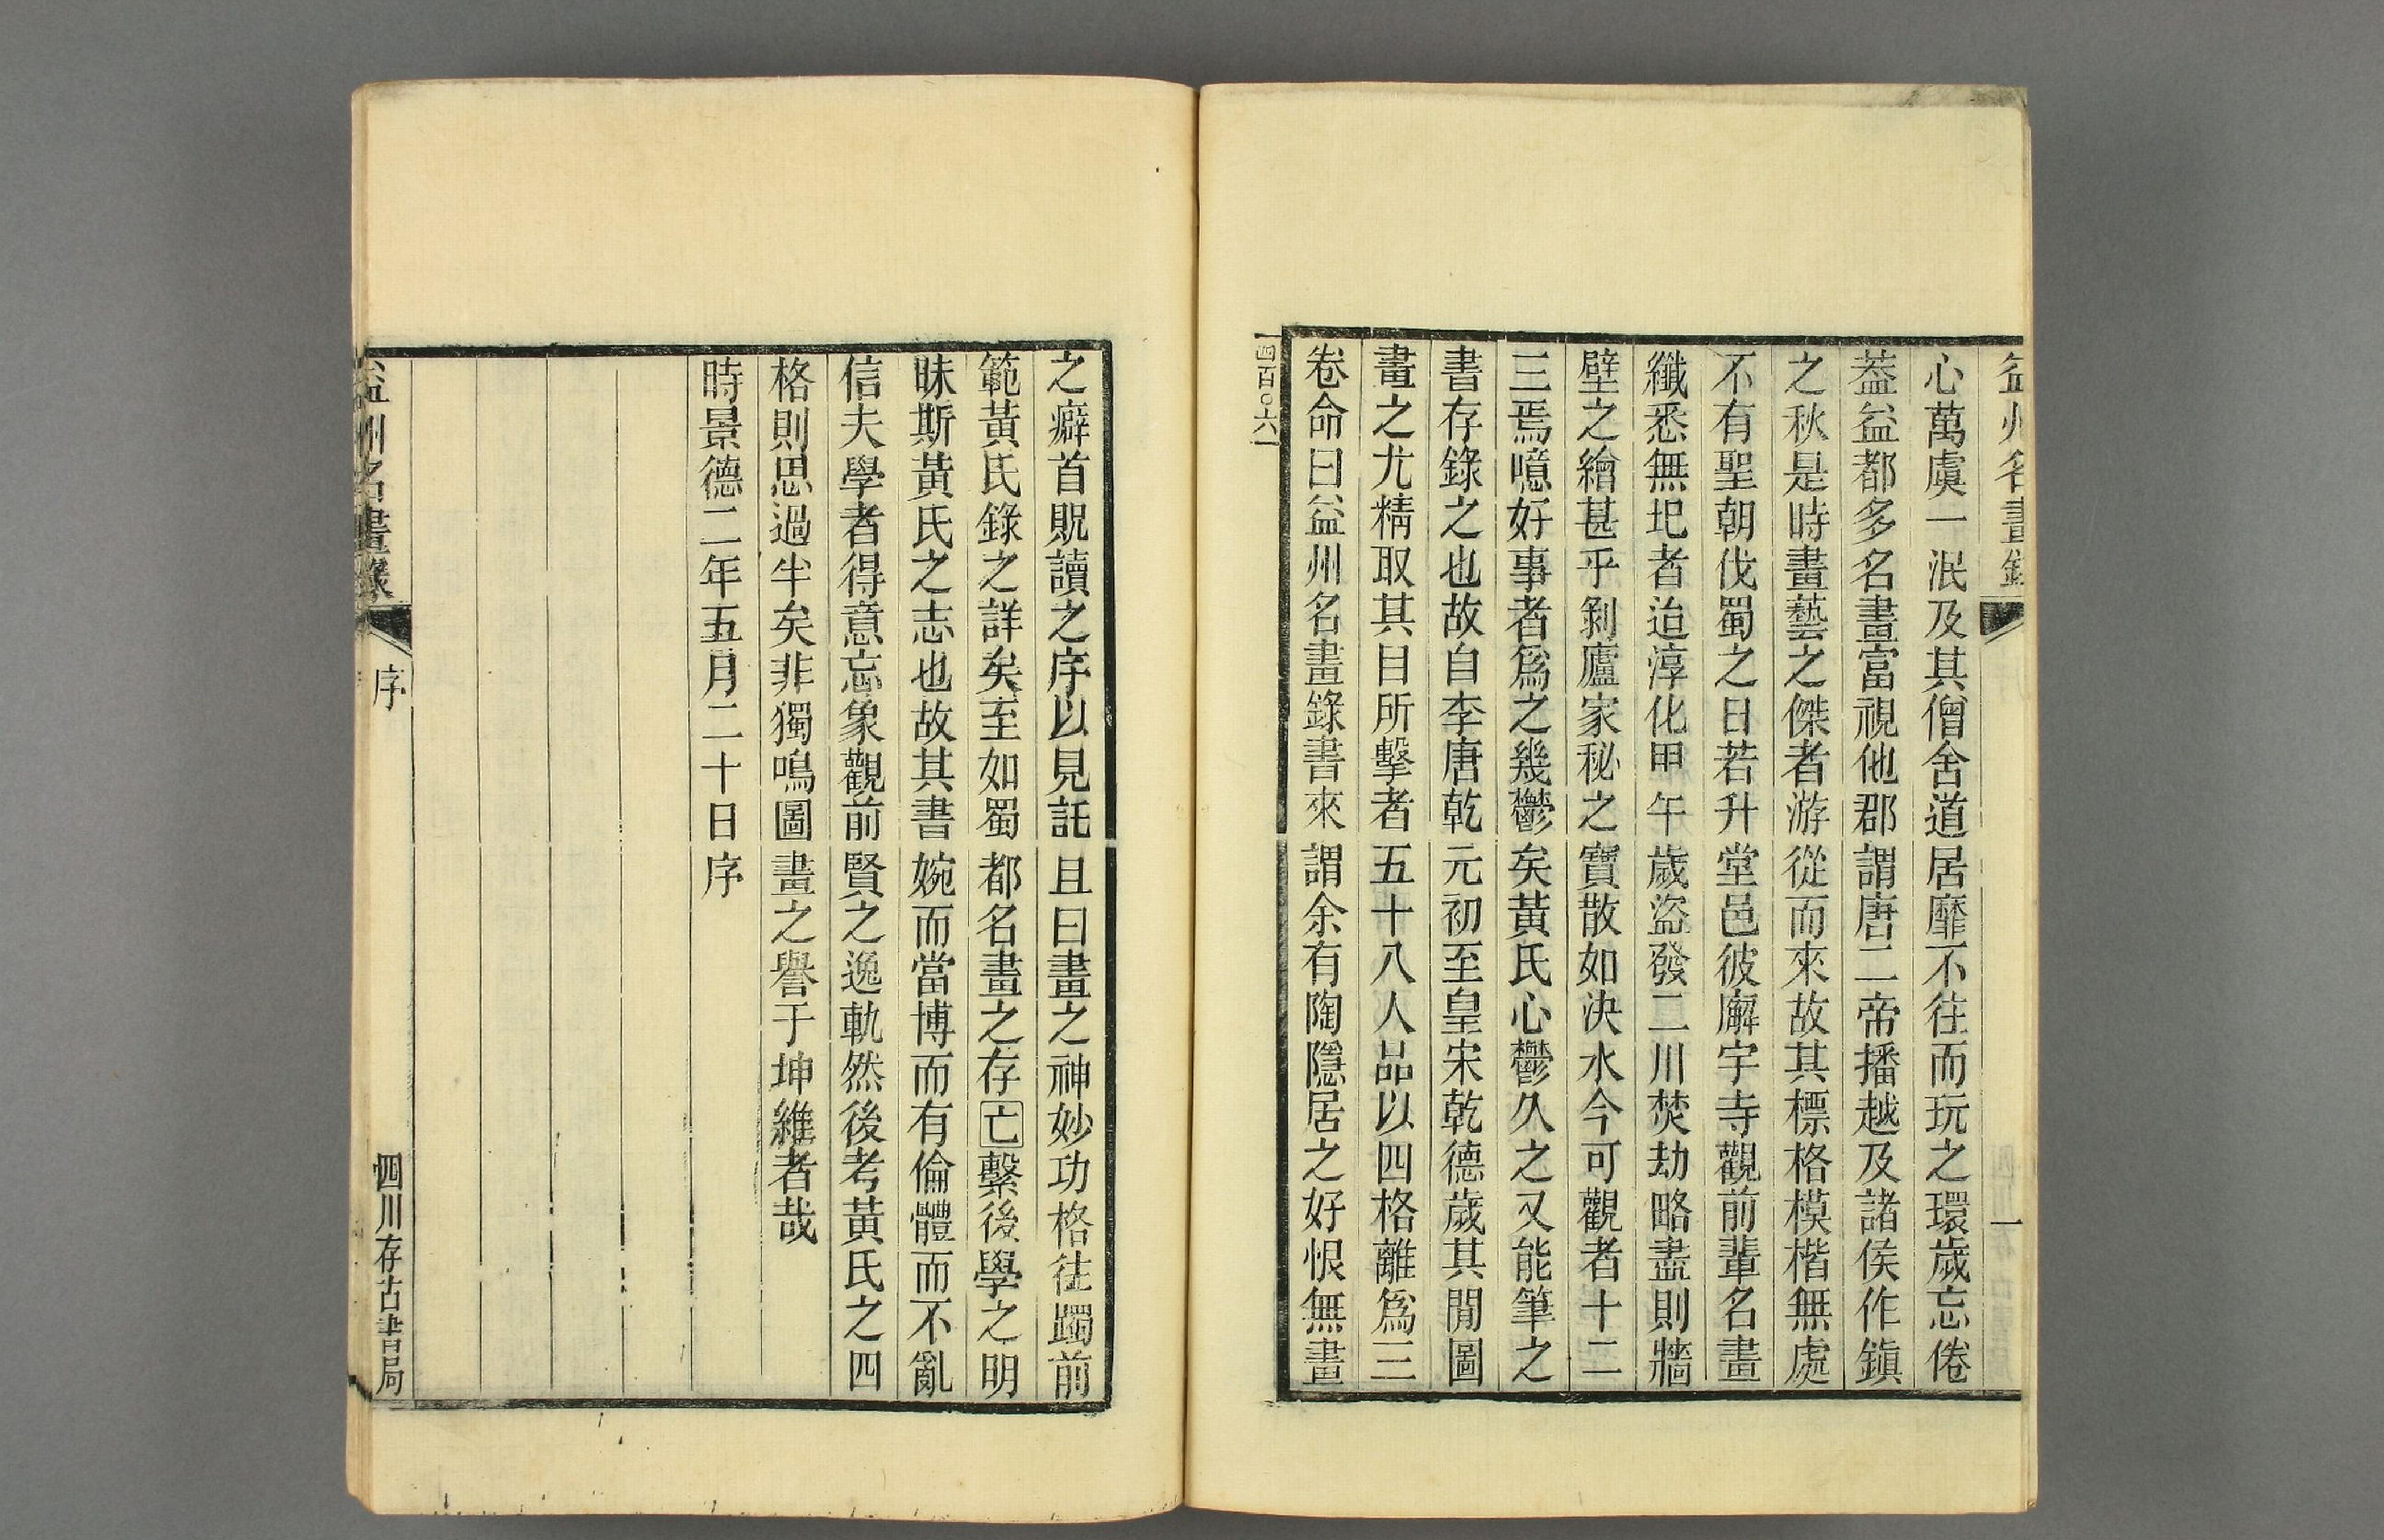 益州名畫錄
一
心萬虞一泯及其僧舍道居靡不往而玩之環歲忘倦
葢益都多名畫富視他郡謂唐二帝播越及諸侯作鎭
之秋是時畫藝之傑者游從而來故其標格模楷無處
不有聖朝伐蜀之日若升堂邑彼廨宇寺觀前輩名畫
纖悉無圯者迨淳化甲午歲盜發二川焚劫略盡則牆
壁之繪甚乎剝廬家秘之寶散如決水今可觀者十二
三焉噫好事者爲之幾鬱矣黃氏心鬱久之又能筆之
書存錄之也故自李唐乾元初至皇宋乾德歲其閒圖
畫之尤精取其目所擊者五十八人品以四格離爲三
卷命曰益州名畫錄書來謂余有陶隱居之好恨無畫
四百〇六
之癖首貺讀之序以見託且曰畫之神妙功格往躅前
範黃氏錄之詳矣至如蜀都名畫之存亡繫後學之明
昧斯黃氏之志也故其書婉而當博而有倫體而不亂
信夫學者得意忘象觀前賢之逸軌然後考黃氏之四
格則思過半矣非獨鳴圖畫之譽于坤維者哉
時景德二年五月二十日序
益州名畫錄
序
四川存古書局